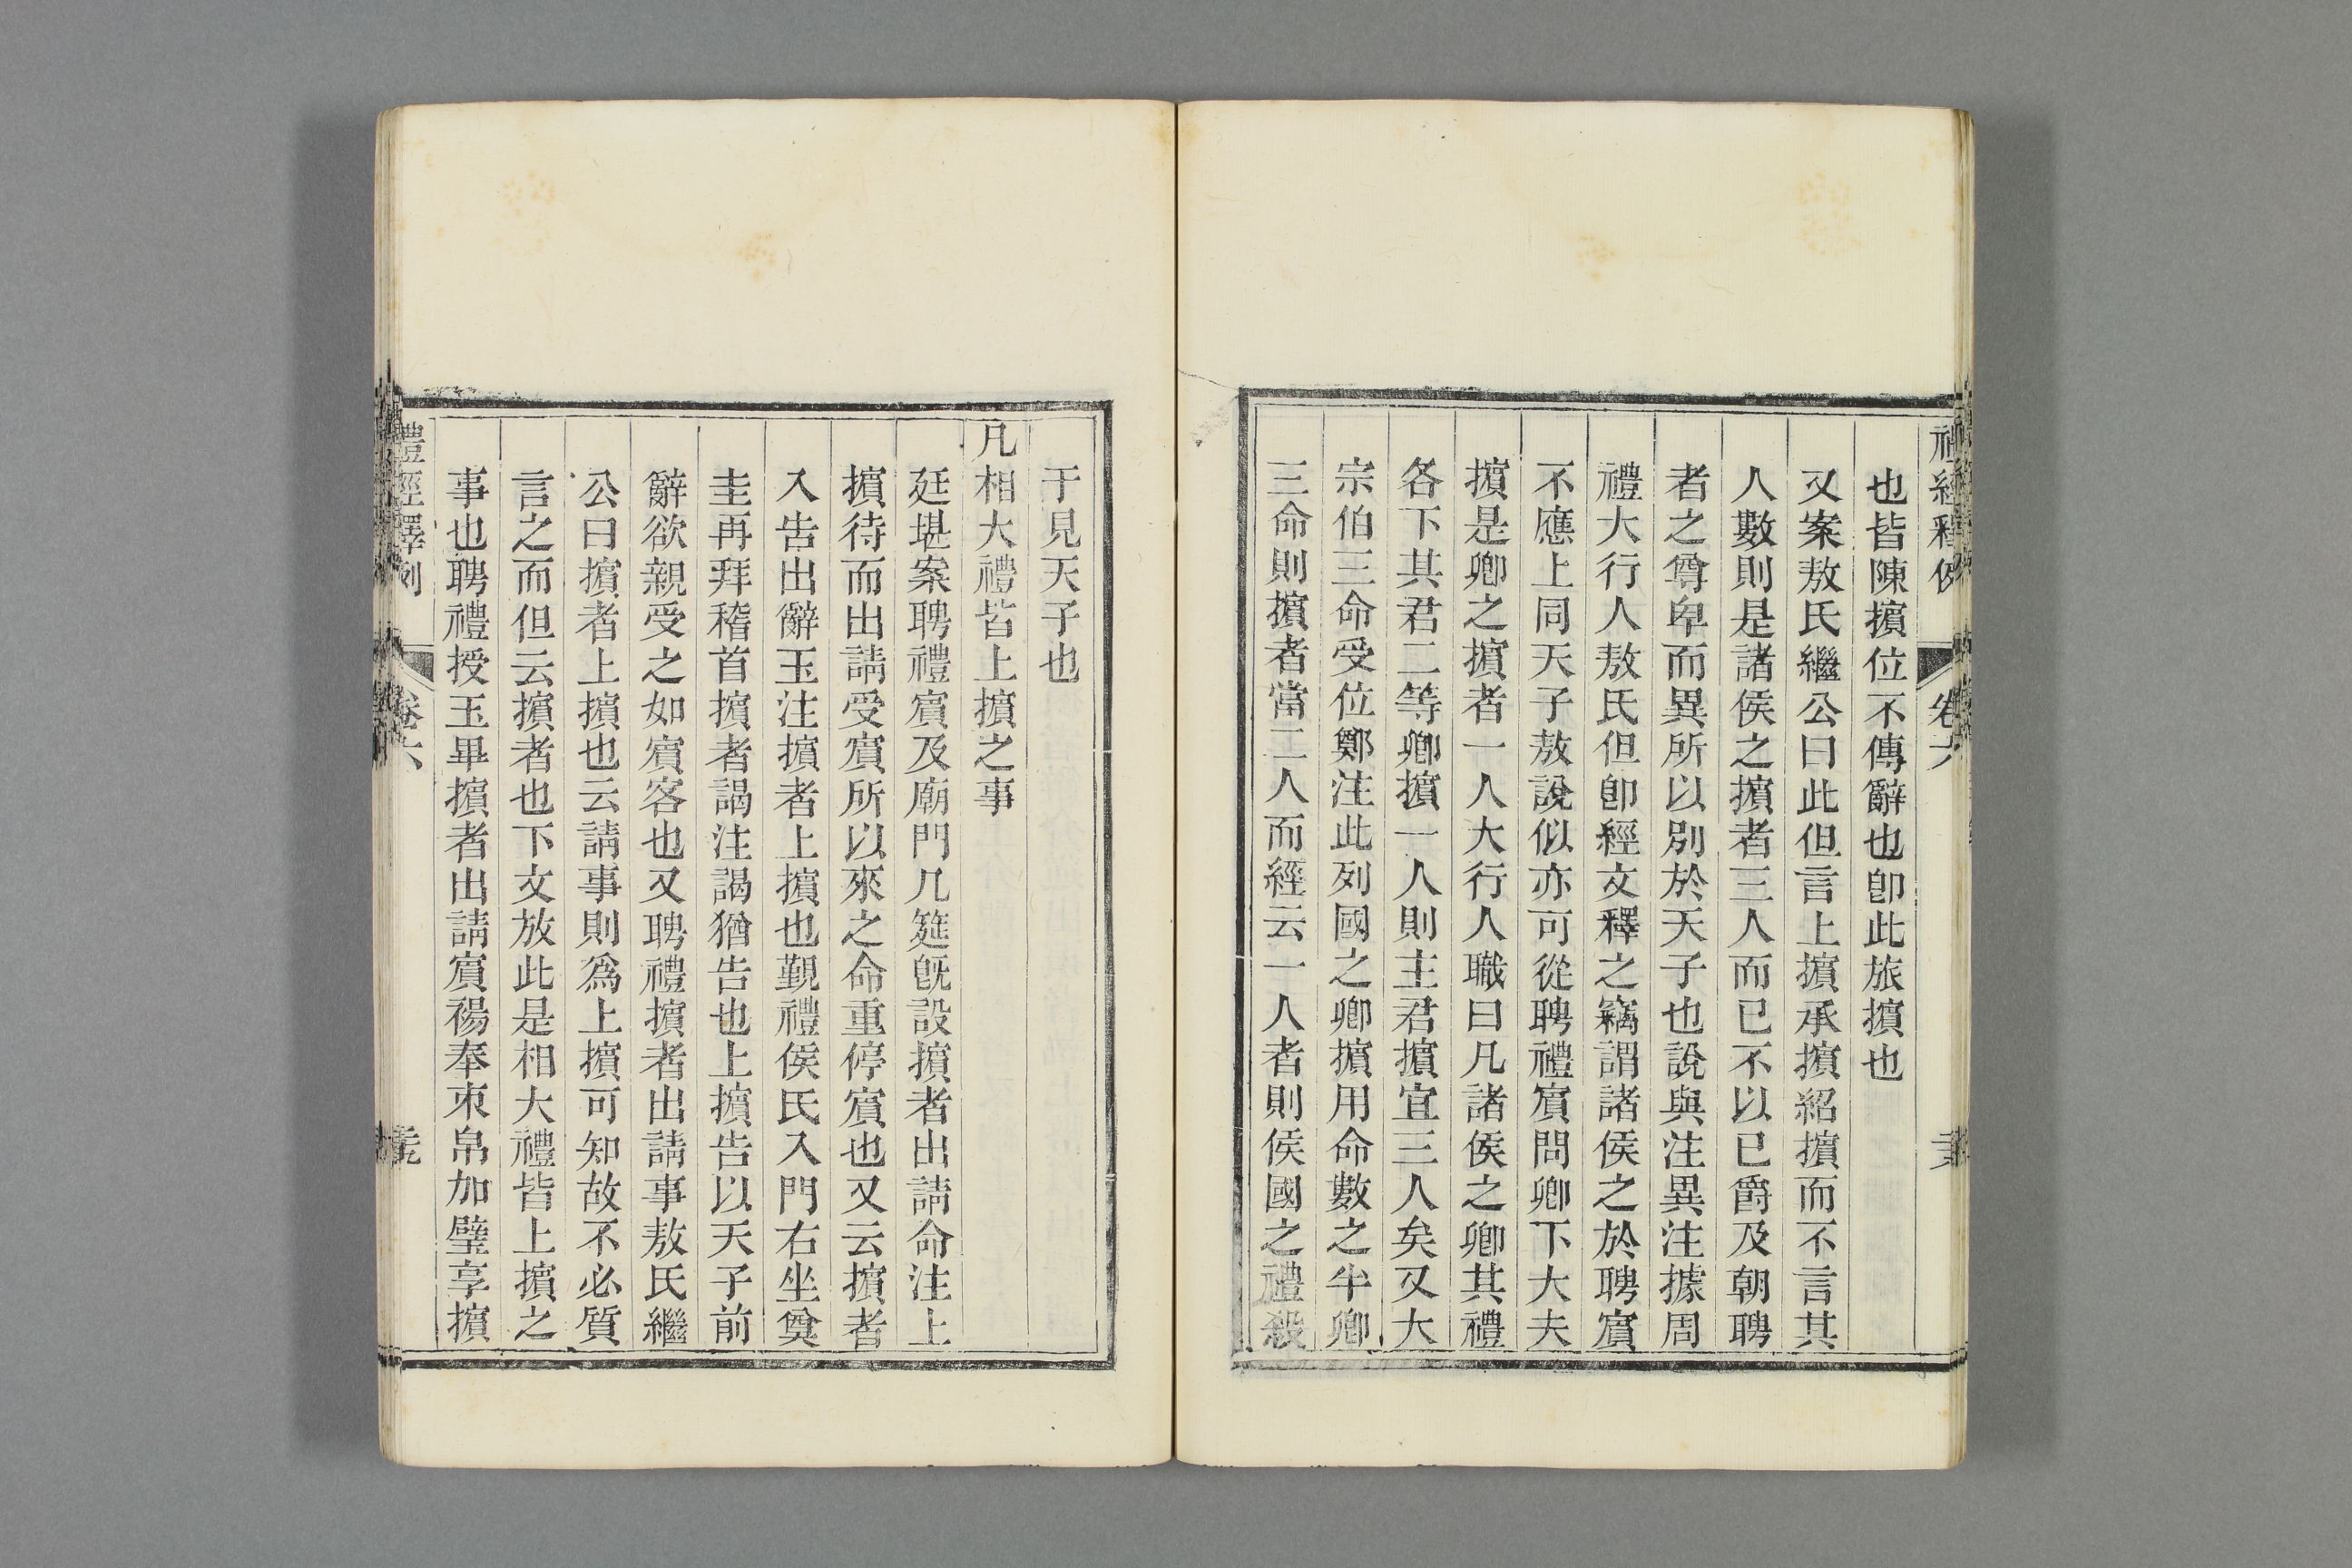 禮經釋例 卷六
也皆陳擯位不傳辭也卽此旅擯也
又案敖氏繼公曰此但言上擯承擯紹擯而不言其
人數則是諸侯之擯者三人而已不以已爵及朝聘
者之尊卑而異所以別於天子也說與注異注據周
禮大行人敖氏但卽經文釋之竊謂諸侯之於聘賓
不應上同天子敖說似亦可從聘禮賓問卿下大夫
擯是卿之擯者一人大行人職曰凡諸侯之卿其禮
各下其君二等卿擯一人則主君擯宜三人矣又大
宗伯三命受位鄭注此列國之卿擯用命數之半卿
三命則擯者當二人而經云一人者則侯國之禮殺
于見天子也
凡相大禮皆上擯之事
廷堪案聘禮賓及廟門几筵旣設擯者出請命注上
擯待而出請受賓所以來之命重停賓也又云擯者
入告出辭玉注擯者上擯也覲禮侯氏入門右坐奠
圭再拜稽首擯者謁注謁猶告也上擯告以天子前
辭欲親受之如賓客也又聘禮擯者出請事敖氏繼
公曰擯者上擯也云請事則爲上擯可知故不必質
言之而但云擯者也下文放此是相大禮皆上擯之
事也聘禮授玉畢擯者出請賓裼奉束帛加璧享擯
禮經釋例 卷六